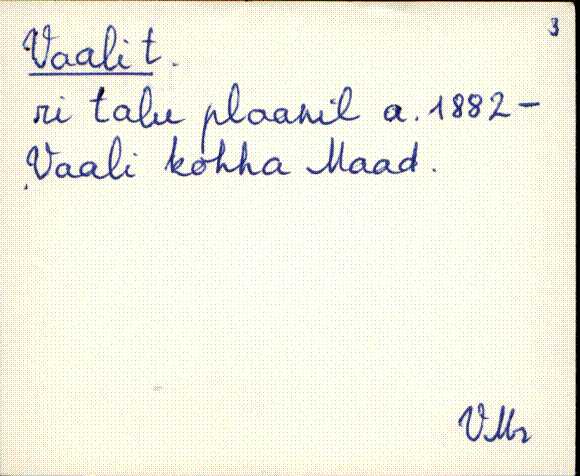 3
Vaali t.
ri talu plaanil a. 1882 –
Vaali kohha Maad.
VMr